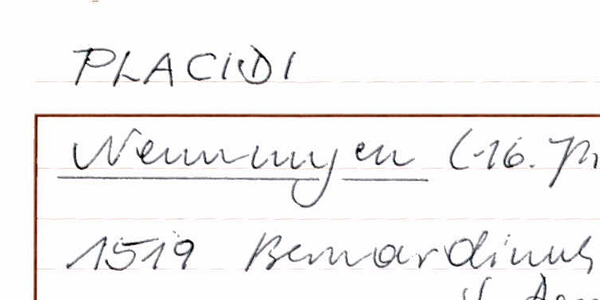 PLACIDI
Nenningen (-16. Jh
1519 Bernardinus